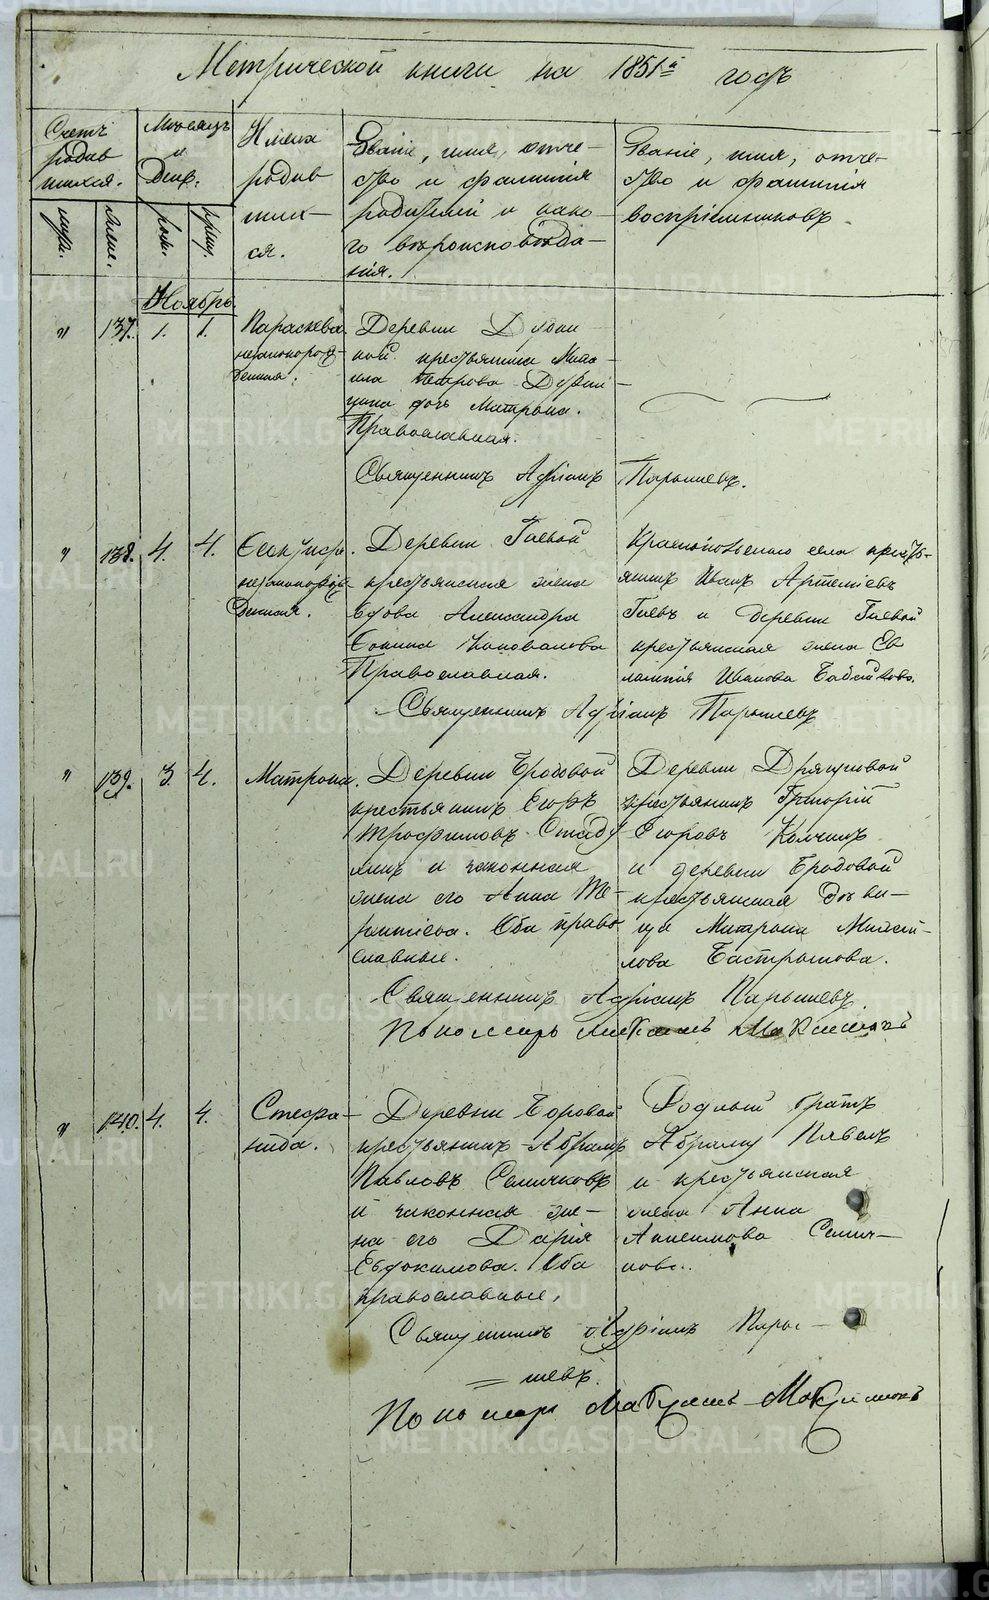 Метрической книги на 1851й годъ
Счетъ
родив
шихся.
муж.
жен.
Мѣсяцъ
и
День.
рож.
крещ.
Имена
родив
ших-
ся.
Званіе, имя, отче-
ство и фамилія
родителей и како-
го вѣроисповѣда-
нія.
Званіе, имя, отче-
ство и фамилія
воспріемниковъ
Ноябрь.
" 137. 1. 1.
Параскева
незаконорож-
денная.
Деревни
крестьянина Миха-
ила Петрова
дочь Матрона.
Православная.
Священникъ Адріанъ Парышевъ.
" 138. 4. 4.
незаконорож-
денная.
Деревни Гаевой
крестьянская жена
вдова Александра
Коновалова
Православная.
села кресть-
янинъ Иванъ Артеміевъ
Гаевъ и деревни Гаевой
крестьянская жена Ев
лампія Иванова
Священникъ Адріанъ Парышевъ
" 139. 3. 4.
Матрона.
Деревни Бродовой
крестьянинъ Егоръ
Трофимовъ Стаду
хинъ и законная
жена его Анна Те-
рентіева. Оба право
славные.
Деревни
крестьянинъ Григорій
Егоровъ Колчинъ
и деревни Бродовой
крестьянская дѣви-
ца Матрона Михай-
лова Бастрыкова.
Священникъ Адріанъ Парышевъ.
Пономарь
" 140. 4. 4.
Стефа-
нида.
Деревни Боровой
крестьянинъ Абрамъ
Павловъ Семячковъ
и законная же-
на его Дарія
Евдокимова. Оба
православные,
Родный братъ
Абраму Павелъ
и крестьянская
жена Анна
Анисимова Семяч-
кова..
Священникъ Адріанъ Пары-
шевъ.
Пономарь
METRIKI.GASO-URAL.RU